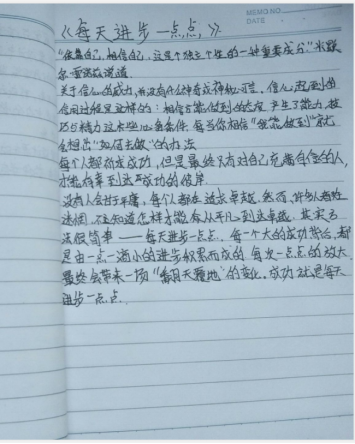 MEMO NO.
DATE
《每天进步一点点》
"依靠自己,相信自己,这是个独立个性的一种重要成分"米歇
尔·雷诺兹说道
关于信心的威力,并没有什么神奇或神秘可言,信心起到作
用的过程是这样的:相信"我能做到"的态度,产生了能力,技
巧与精力这些必备条件,每当你相信"我能做到"时,就
会想出"如何去做"的办法
每个人都希望成功,但是最终只有对自己充满自信的人,
才能有幸到达成功的彼岸
没有人会甘于平庸,每个人都在追求卓越,然而,许多人都在
迷惘,不知道怎样才能够从平凡到达卓越,其实方
法很简单——每天进步一点点,每一个大的成功背后,都
是由一点一滴小的进步积累而成的,每次一点点的放大
最终会带来一场"翻天覆地"的变化,成功就是每天
进步一点点